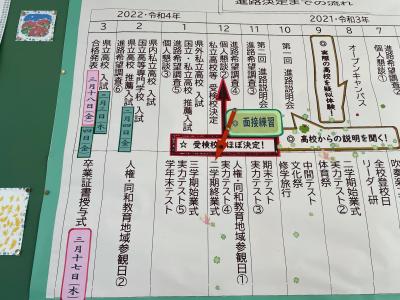 進路決定までの流れ
2022・令和4年
2021・令和3年
7
8
9
10
11
12
1
2
3
進路希望調査②
個人懇談①
オープンキャンパス
☆ 実際の高校を疑似体験!
☆ 高校からの説明を聞く!
第一回 進路説明会
第二回 進路説明会
進路希望調査③
進路希望調査④
個人懇談②
私立高校等 受検校決定
◎ 面接練習
☆ 受検校ほぼ決定!
県外私立高校 入試
国立・私立高校 推薦入試
進路希望調査⑤
個人懇談③
県内私立高校 入試
国立高等専門学校 入試
県立高校 推薦入試
進路希望調査⑥
県立高校 入試
合格発表
三月十八日(金)
全校登校日
リーダー研
二学期始業式
実力テスト②
体育祭
中間テスト
文化祭
修学旅行
実力テスト③
期末テスト
人権・同和教育地域参観日①
実力テスト④
二学期終業式
三学期始業式
実力テスト⑤
学年末テスト
人権・同和教育地域参観日②
卒業証書授与式
三月十七日(木)